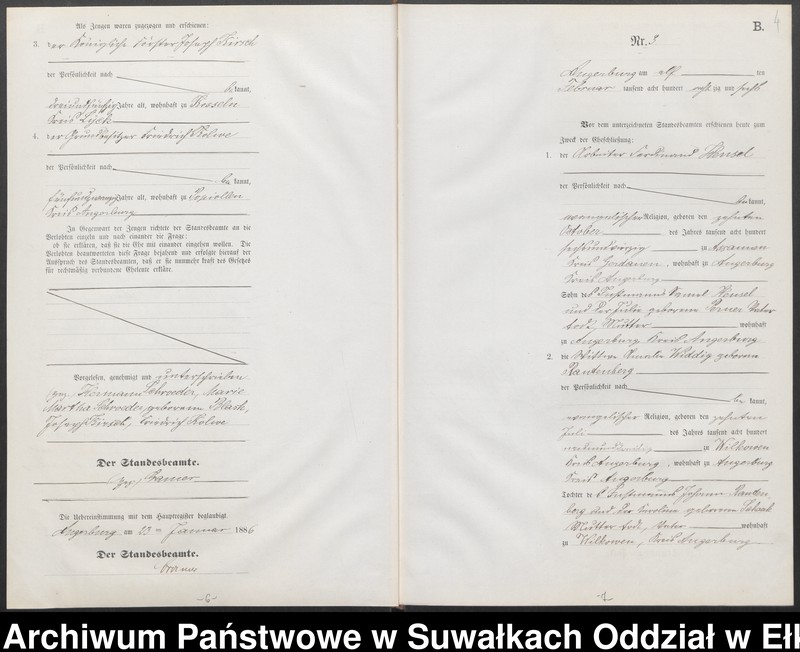 Als Zeugen waren zugezogen und erschienen:
3. der Königliche Förster Joseph Kirsch
der Persönlichkeit nach
be kannt,
Jahre alt, wohnhaft zu
Kreis Lyck
4. der Grundbesitzer Friedrich Kolwe
der Persönlichkeit nach
be kannt,
Jahre alt, wohnhaft zu Popiollen
Kreis Angerburg
In Gegenwart der Zeugen richtete der Standesbeamte an die
Verlobten einzeln und nach einander die Frage:
ob sie erklären, daß sie die Ehe mit einander eingehen wollen. Die
Verlobten beantworteten diese Frage bejahend und erfolgte hierauf der
Ausspruch des Standesbeamten, daß er sie nunmehr kraft des Gesetzes
für rechtmäßig verbundene Eheleute erkläre.
Vorgelesen, genehmigt und unterschrieben
gez. Hermann Schroeder, Marie
Martha Schroeder geborene
Joseph Kirsch, Friedrich Kolwe
Der Standesbeamte.
gez.
Die Uebereinstimmung mit dem Hauptregister beglaubigt
Angerburg am 23 ten Januar 1886
Der Standesbeamte.
-6-
B.
4
Nr. 3
Angerburg am elf ten
Februar tausend acht hundert achtzig und sechs
Vor dem unterzeichneten Standesbeamten erschienen heute zum
Zweck der Eheschließung:
1. der Arbeiter Ferdinand Hensel
der Persönlichkeit nach
be kannt,
evangelischer Religion, geboren den zehnten
October des Jahres tausend acht hundert
sechsundvierzig zu
Kreis Gerdauen, wohnhaft zu Angerburg
Kreis Angerburg
Sohn des Losmanns Hensel
und der Julie geborene Vater
todt, Mutter wohnhaft
zu Angerburg Kreis Angerburg
2. die Wittwe Amalie Widdig geborene
Rautenberg
der Persönlichkeit nach
be kannt,
evangelischer Religion, geboren den zehnten
Juli des Jahres tausend acht hundert
zu Wilkowen
Kreis Angerburg, wohnhaft zu Angerburg
Kreis Angerburg
Tochter des Losmanns Johann Rauten
berg und der Caroline geborene
Mutter todt, Vater wohnhaft
zu Wilkowen, Kreis Angerburg
-7-
Archiwum Państwowe w Suwałkach Oddział w Ełk